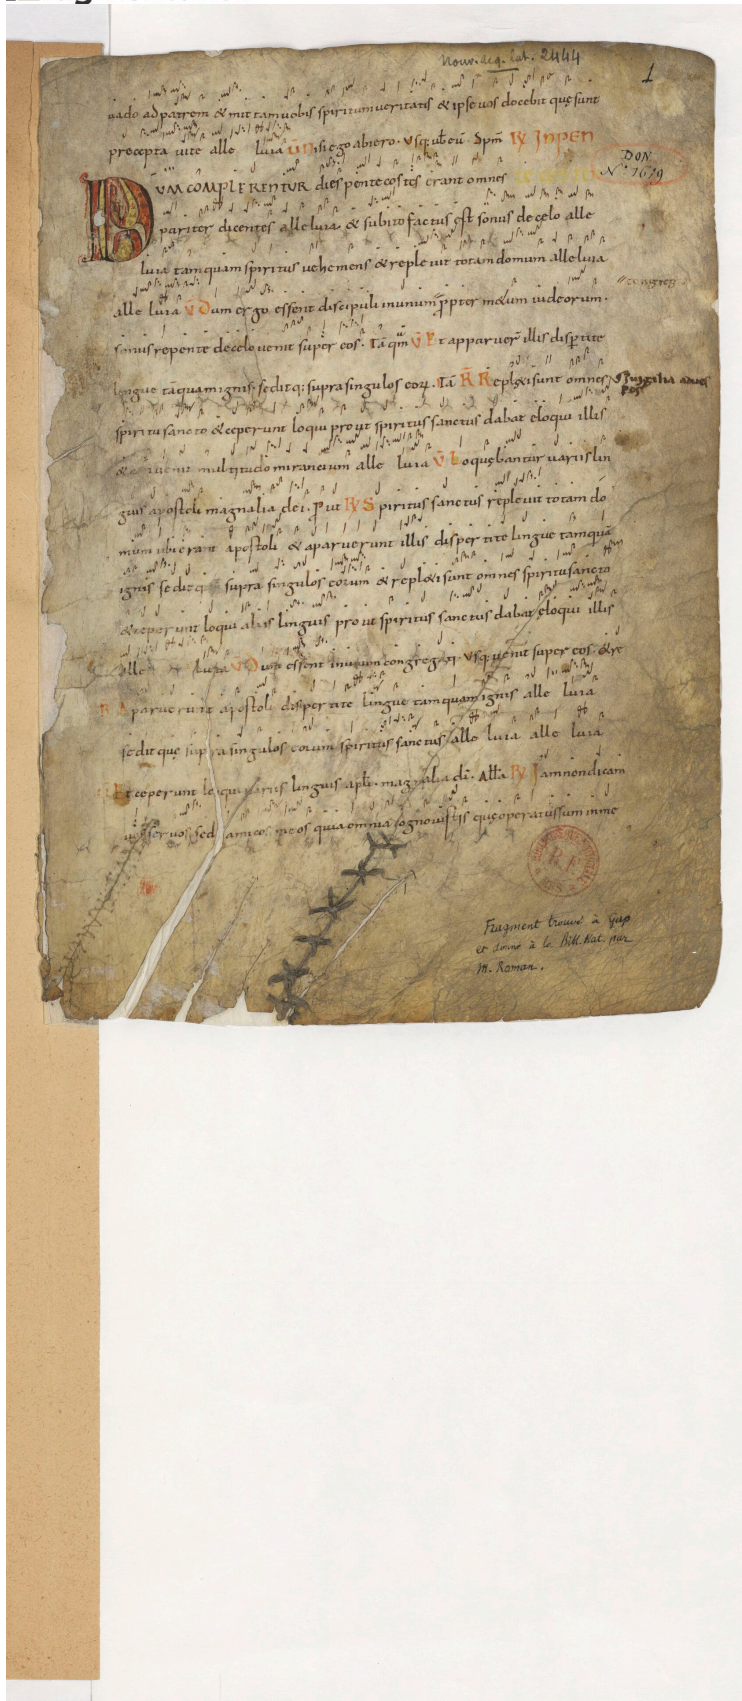 Nouv. acq. lat. 2444
1
uado ad patrem & mittam uobis spiritum ueritatis & ipse uos docebit quę sunt
precepta uite alle luia V̄ Nisi ego abiero. Vsq; ub̄ eū. Sp̄m R̸ IN PEN
DON
N° 1679
DUM COMPLERENTUR dies pentecostes erant omnes
pariter dicentes alleluia & subito factus est sonus de celo alle
luia tamquam spiritus uehemens & repleuit totam domum alleluia
alle luia V̄ Dum ergo essent discipuli in unum propter metum iudeorum.
sonus repente de celo uenit super eos. Tāqm̄ V̄ Et apparuer̄ illis dispertite
lingue tāquam ignis. seditq; supra singulos eorꝝ. Tā R̄ Repl&i sunt omnes
spiritu sancto & ceperunt loqui prout spiritus sanctus dabat eloqui illis
& conuenit multitudo mirancium alle luia V̄ Loquębantur uariis lin
guis apostoli magnalia dei. Prut R̸ Spiritus sanctus repleuit totam do
mum ubi erant apostoli & aparuerunt illis dispertite lingue tamquā
ignis seditq; supra singulos eorum & repl&i sunt omnes spiritu sancto
& ceperunt loqui aliis linguis prout spiritus sanctus dabat eloqui illis
alle luia V̄ Dum essent in unum congregati. Vsq; uenit super eos. &re
R̸ Aparuerunt apostoli dispertite lingue tamquam ignis alle luia
seditquę supra singulos eorum spiritus sanctus alle luia alle luia
V̄ Et ceperunt loqui uariis linguis apl̄i. magnalia dī. All̄a R̸ Iam non dicam
uos seruos sed amicos meos quia omnia cognouistis quę operatus sum in me
Fragment trouvé à Gap
et donné à la Bibl. Nat. par
M. Roman.